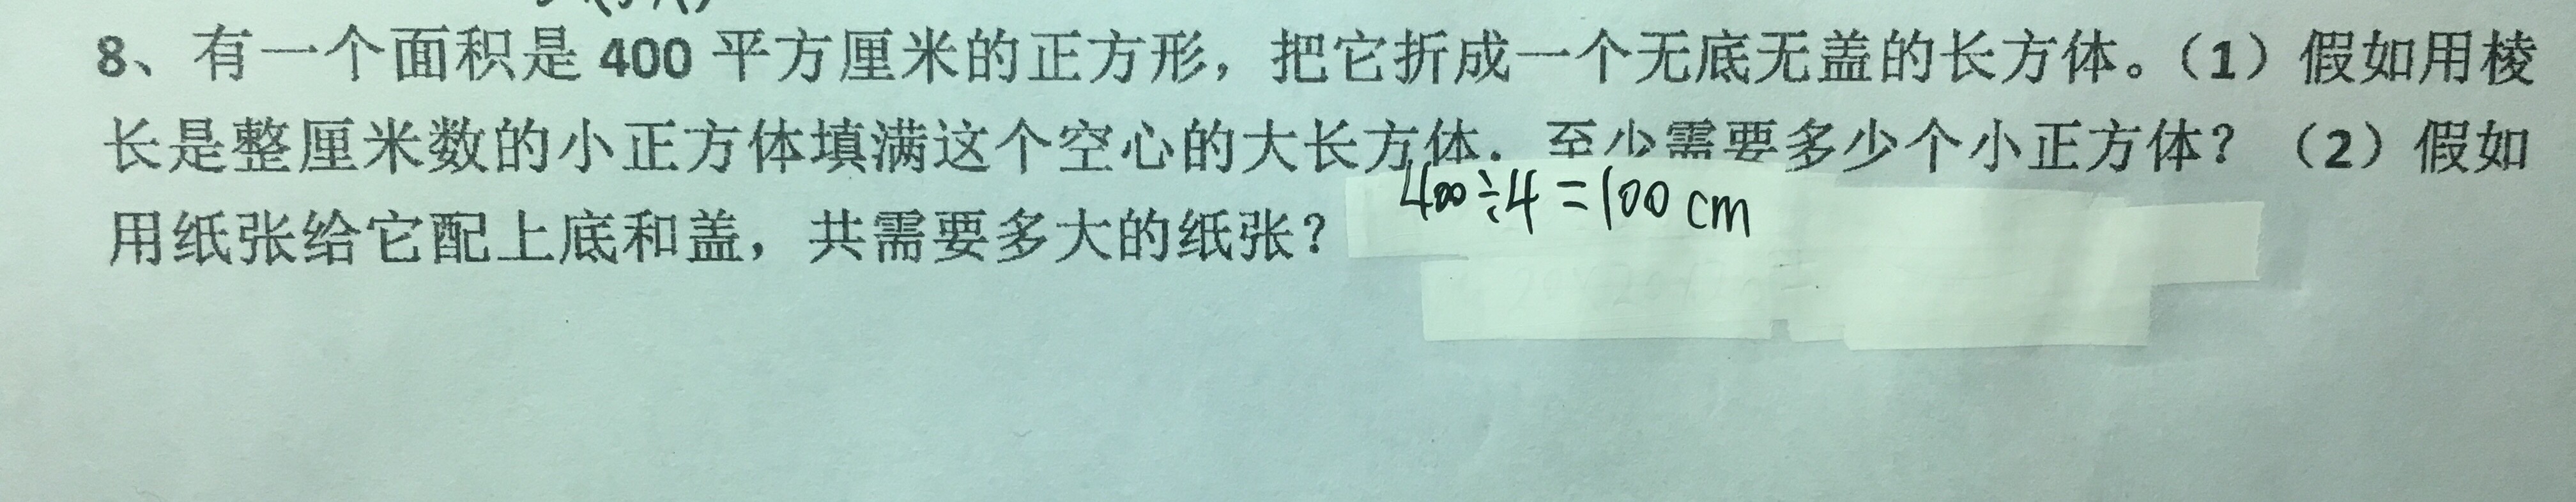 8、有一个面积是 400 平方厘米的正方形，把它折成一个无底无盖的长方体。（1）假如用棱
长是整厘米数的小正方体填满这个空心的大长方体．至少需要多少个小正方体？（2）假如
用纸张给它配上底和盖，共需要多大的纸张？
400÷4=100 cm